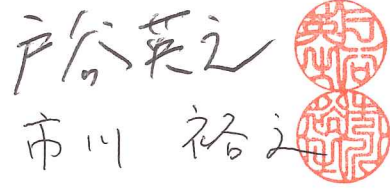 戸谷英之
市川 裕之